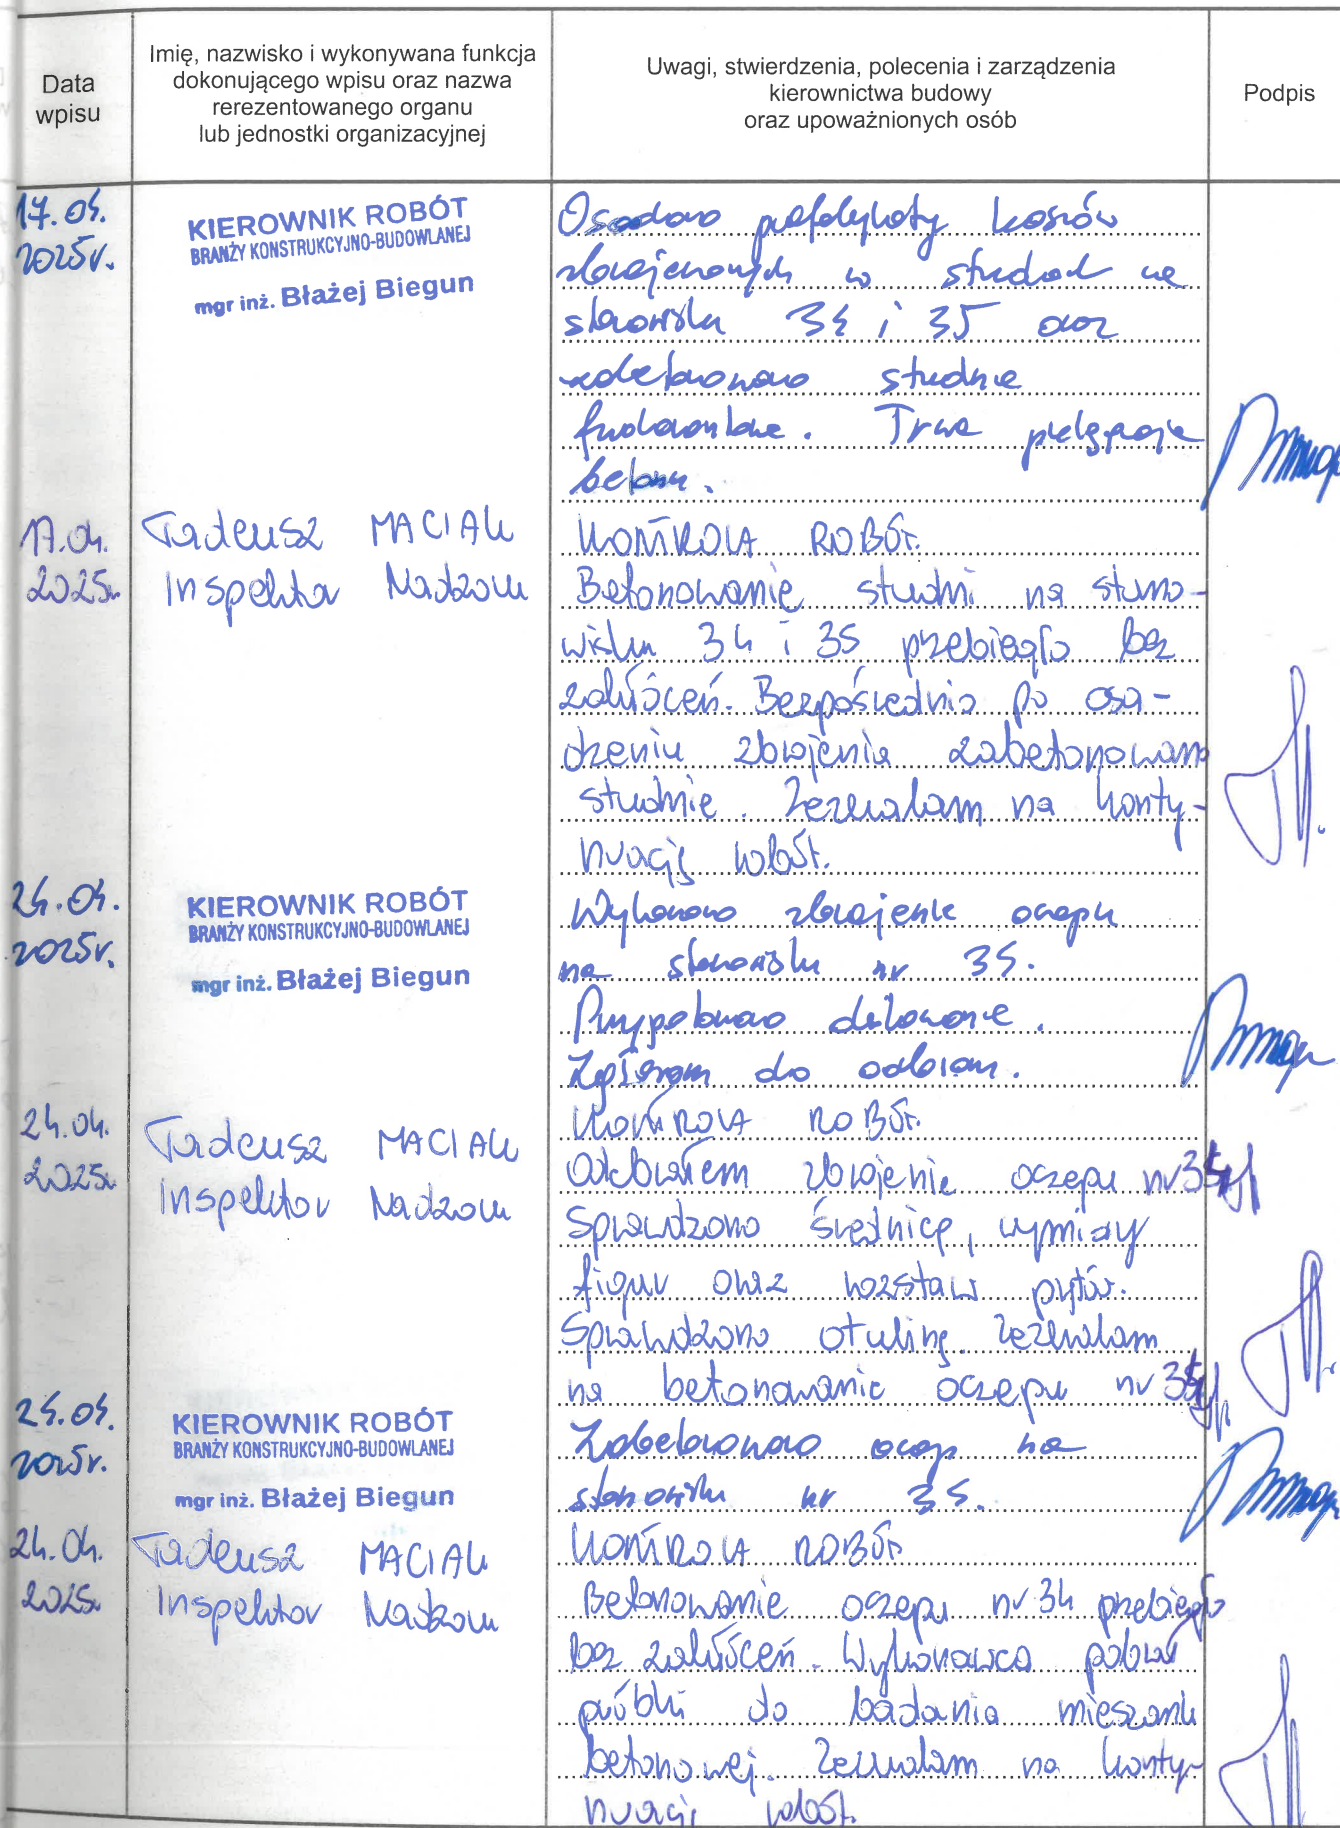 Data
wpisu
Imię, nazwisko i wykonywana funkcja
dokonującego wpisu oraz nazwa
rerezentowanego organu
lub jednostki organizacyjnej
Uwagi, stwierdzenia, polecenia i zarządzenia
kierownictwa budowy
oraz upoważnionych osób
Podpis
17.04.
2025r.
KIEROWNIK ROBÓT
BRANŻY KONSTRUKCYJNO-BUDOWLANEJ
mgr inż. Błażej Biegun
Osadzono prefabrykaty koszów
zbrojeniowych w studniach na
stanowisku 34 i 35 oraz
zabetonowano studnie
fundamentowe. Trwa pielęgnacja
betonu.
17.04.
2025r.
Tadeusz MACIAK
Inspektor Nadzoru
KONTROLA ROBÓT.
Betonowanie studni na stano-
wisku 34 i 35 przebiegło bez
zakłóceń. Bezpośrednio po osa-
dzeniu zbrojenia zabetonowano
studnie. Zezwalam na konty-
nuację robót.
24.04.
2025r.
KIEROWNIK ROBÓT
BRANŻY KONSTRUKCYJNO-BUDOWLANEJ
mgr inż. Błażej Biegun
Wykonano zbrojenie oczepu
na stanowisku nr 34.
Przygotowano deskowanie.
Zgłaszam do odbioru.
24.04.
2025r.
Tadeusz MACIAK
Inspektor Nadzoru
KONTROLA ROBÓT.
Odebrałem zbrojenie oczepu nr 34
Sprawdzono średnicę, wymiary
figur oraz rozstaw prętów.
Sprawdzono otulinę. Zezwalam
na betonowanie oczepu nr 34
24.04.
2025r.
KIEROWNIK ROBÓT
BRANŻY KONSTRUKCYJNO-BUDOWLANEJ
mgr inż. Błażej Biegun
Zabetonowano oczep na
stanowisku nr 34.
24.04.
2025r
Tadeusz MACIAK
Inspektor Nadzoru
KONTROLA ROBÓT
Betonowanie oczepu nr 34 przebiegło
bez zakłóceń. Wykonawca pobrał
próbki do badania mieszanki
betonowej. Zezwalam na konty-
nuację robót.